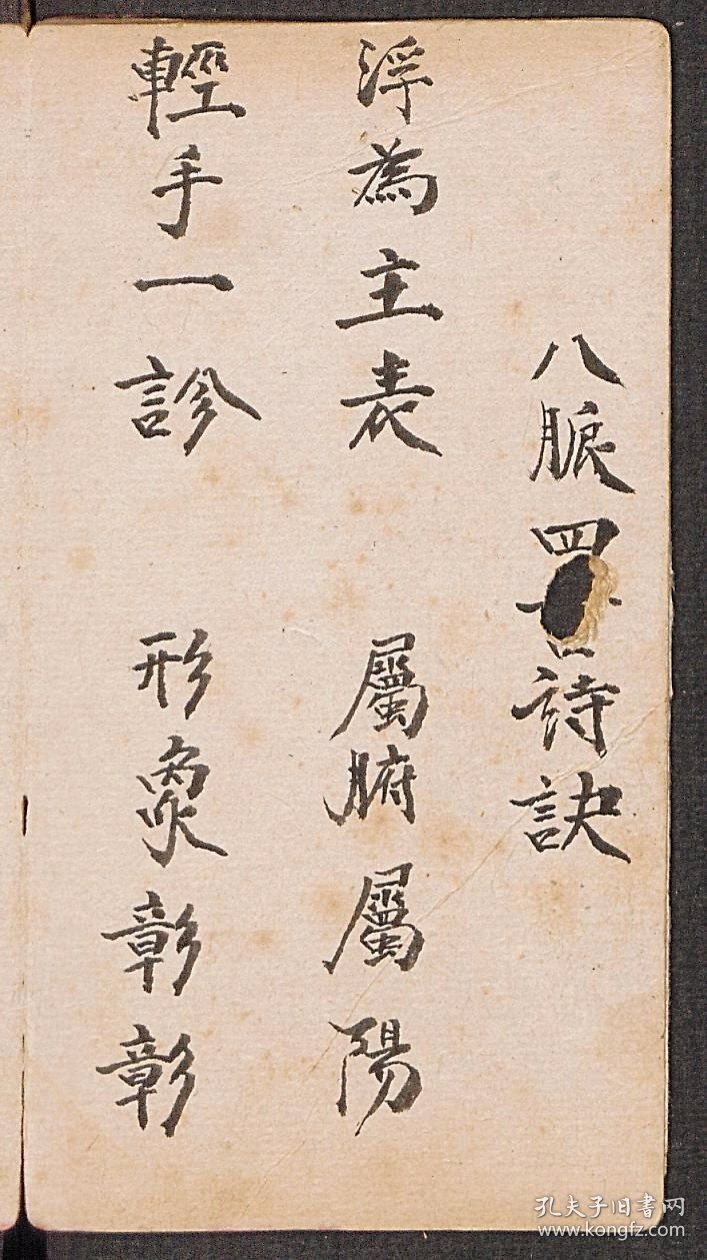 八脈四言詩訣
浮為主表 屬腑屬陽
輕手一診 形象彰彰
孔夫子旧书网
www.kongfz.com